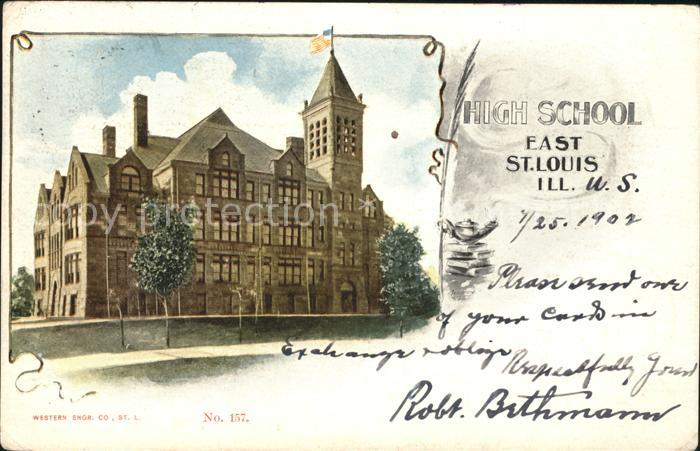 HIGH SCHOOL
EAST
ST. LOUIS
ILL. U. S.
7/25. 1902
Please send one
of your cards in
Exchange & oblige
Respectfully Yours
Robt. Bethmann
copy protection
WESTERN ENGR. CO., ST. L.
No. 157.